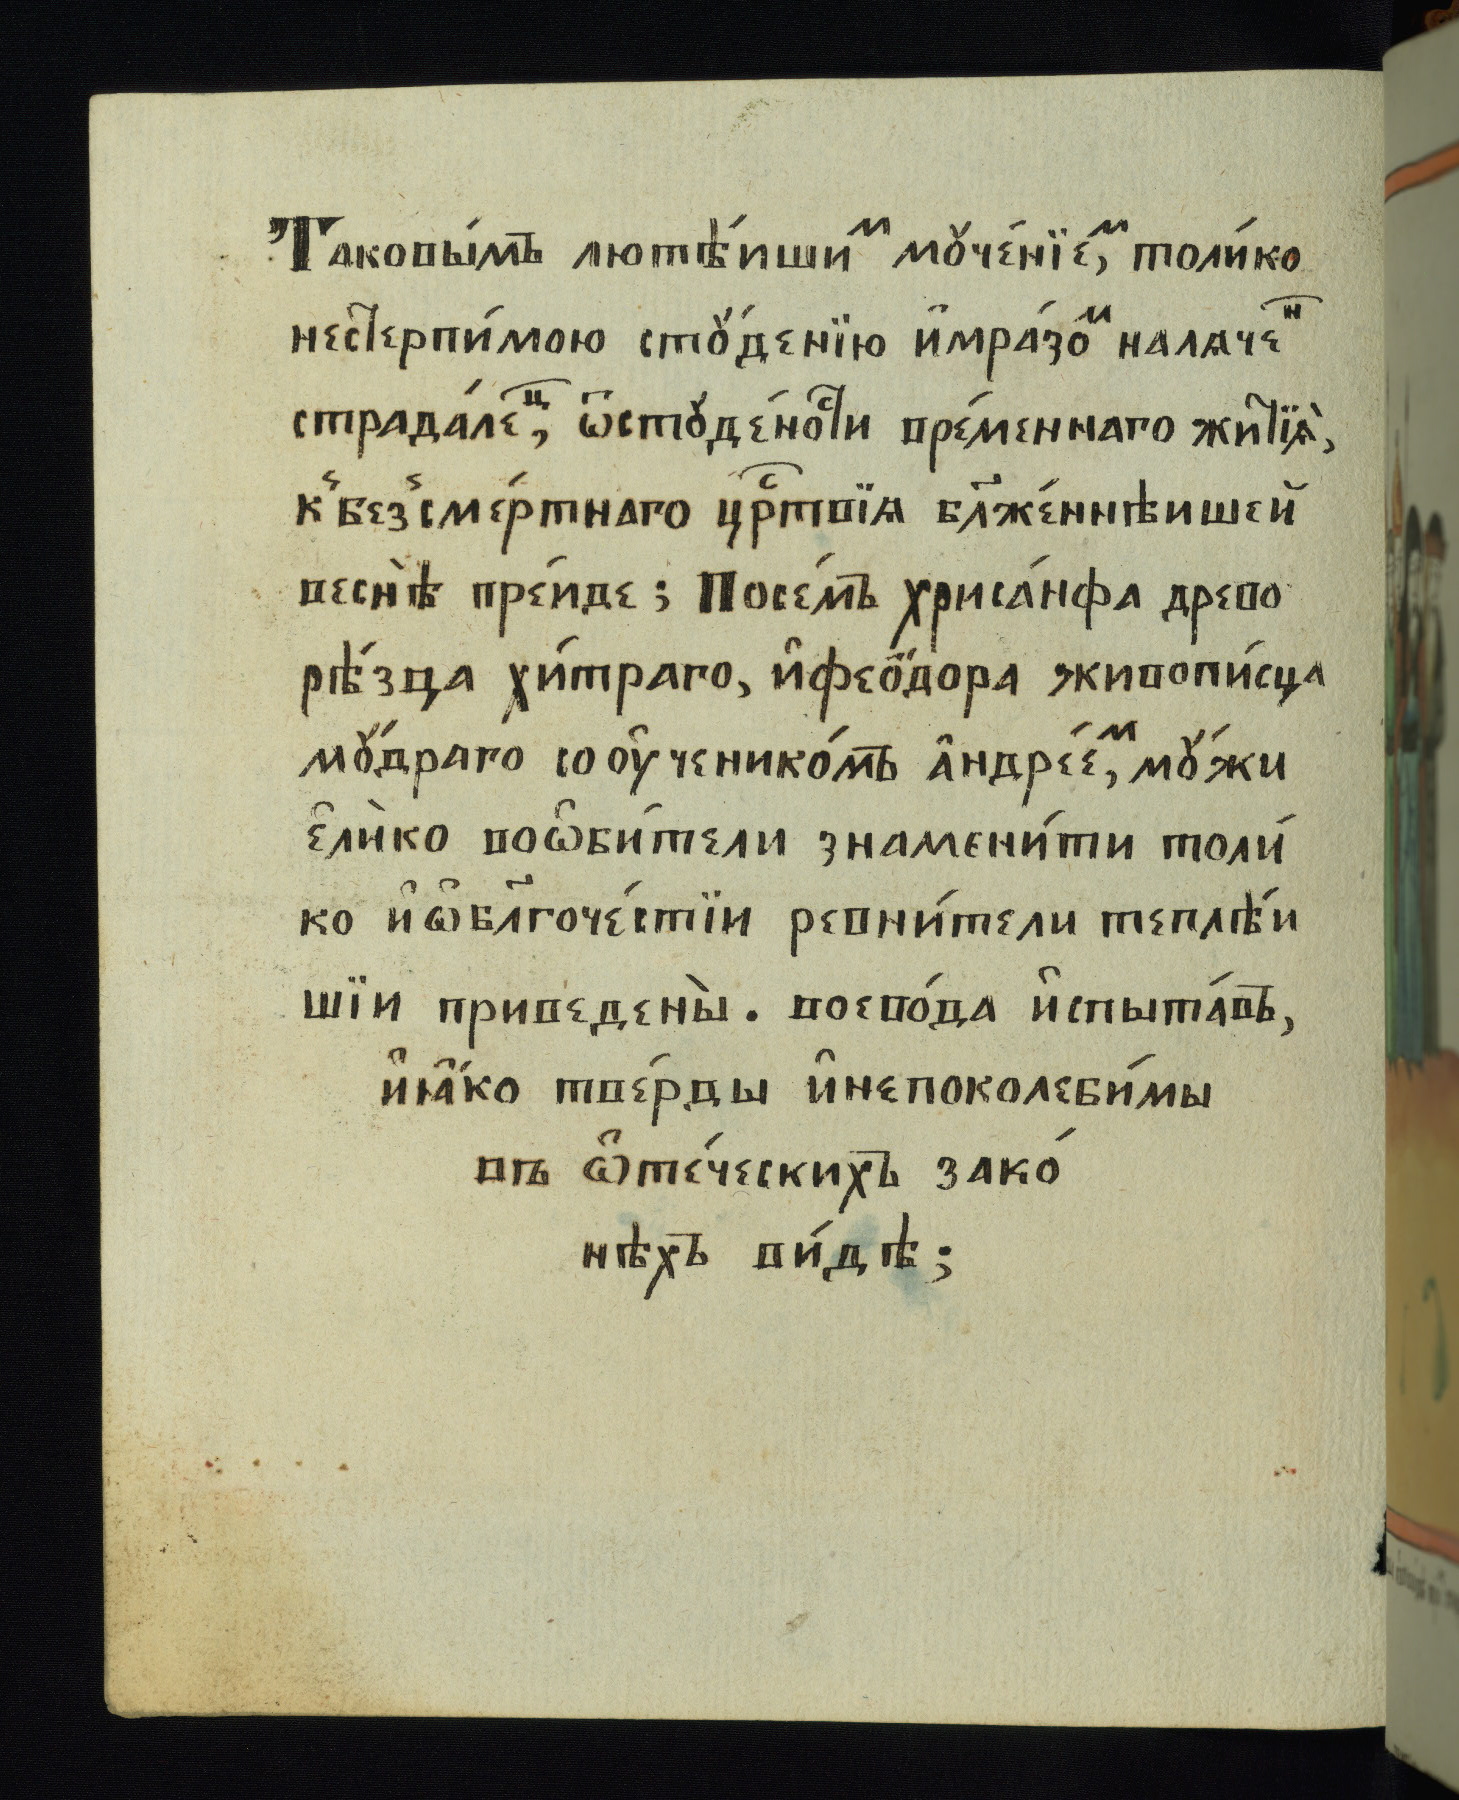 Таковы́мъ лютѣ́иши́ⷨ мꙋче́нїе́ⷨ, толи́ко
нестерпи́мою стꙋ́денїю и҆мра́зоⷨ налѧчеⷩ҇
страда́леⷰ҇, ѿстꙋде́ности вре́меннаго житїѧ̀,
къ безсме́ртнаго црⷭ҇твїѧ бл҃же́ннѣишей
веснѣ̀ пре́иде; Посе́мъ хриса́нфа древо
рѣ́зца хи́траго, и҆фео́дора живопи́сца
мꙋ́драго соꙋ҆ченико́мъ а҆ндре́еⷨ, мꙋ́жи
е҆лѝко воѡ҆би́тели знамени́ти толи́
ко и҆ѡ҆бл҃гоче́стїи ревни́тели теплѣ́и
шїи приведены̀. воево́да и҆спыта́въ,
и҆ꙗ҆́ко тве́рды и҆непоколеби́мы
въ ѻ҆те́ческихъ зако́
нѣхъ ви́дѣ;